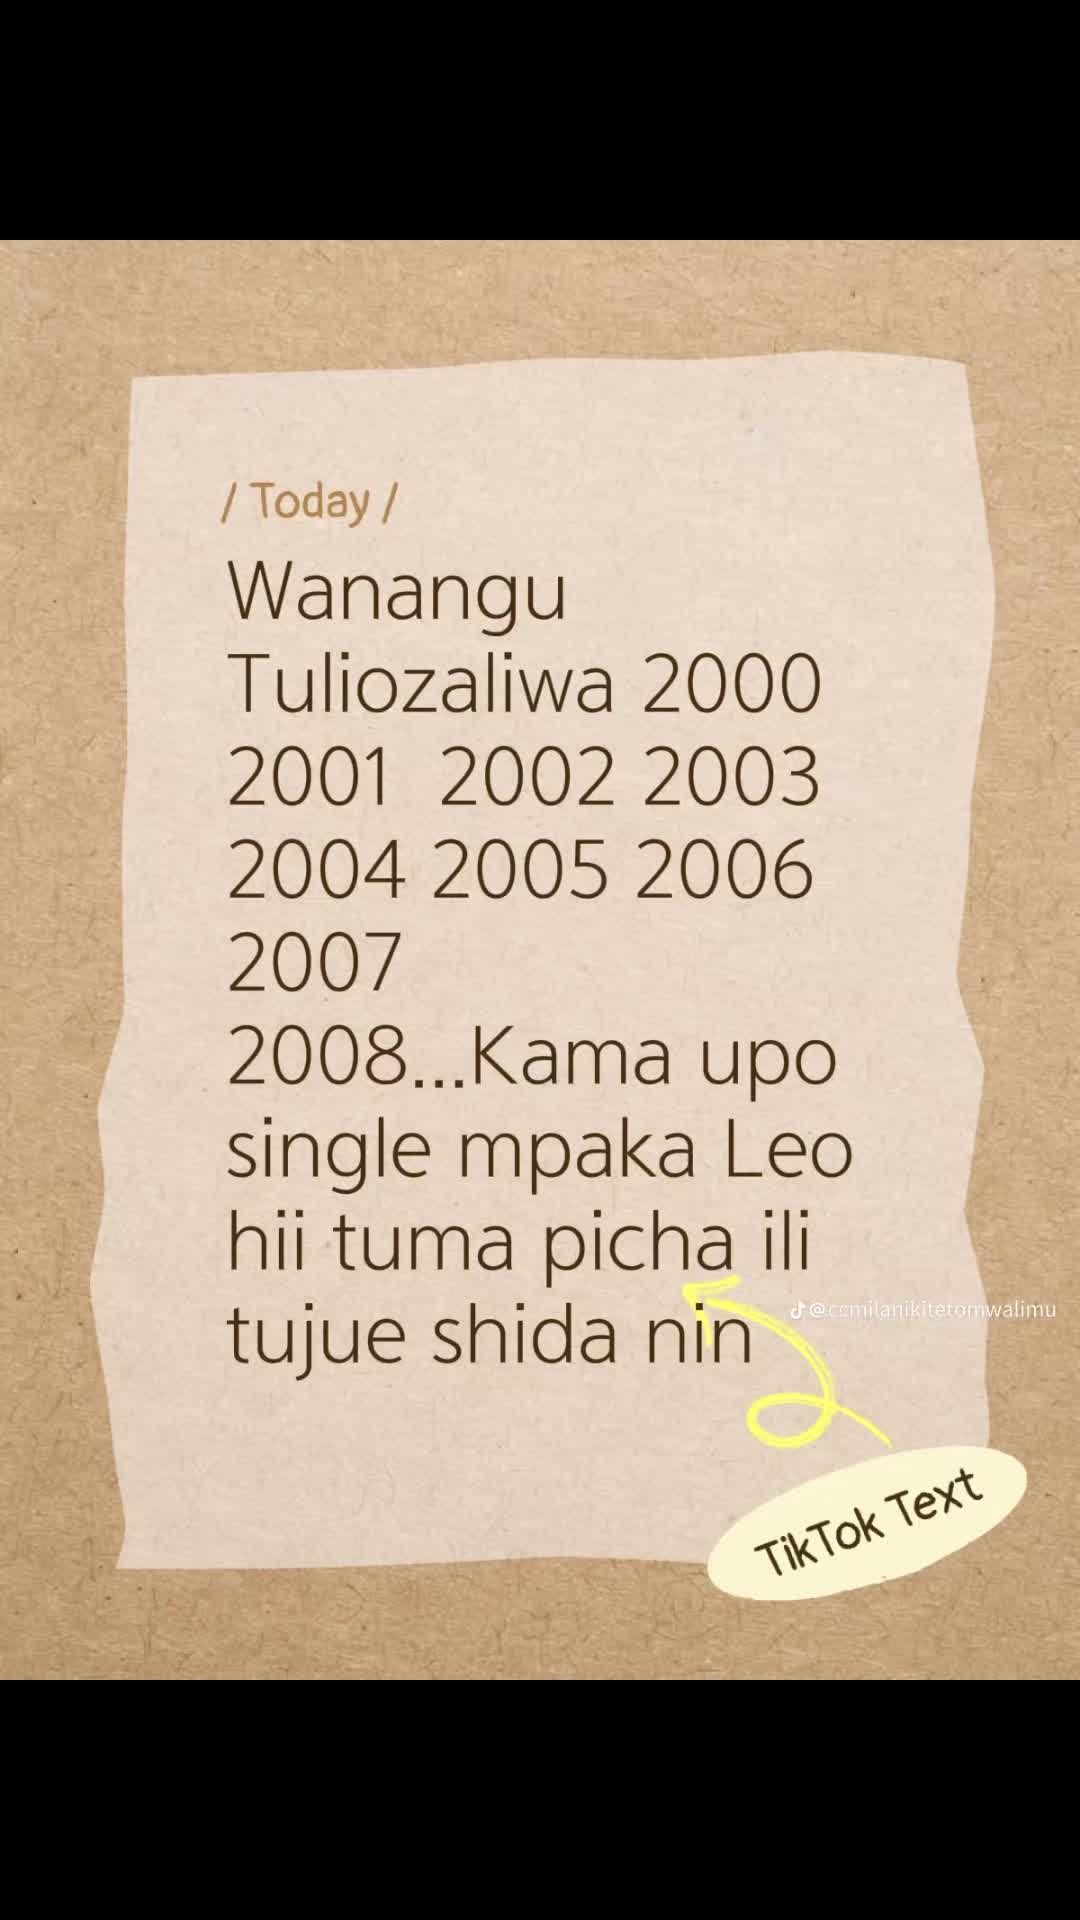 / Today /
Wanangu
Tuliozaliwa 2000
2001 2002 2003
2004 2005 2006
2007
2008...Kama upo
single mpaka Leo
hii tuma picha ili
tujue shida nin
@ccmilanikitetomwalimu
TikTok Text